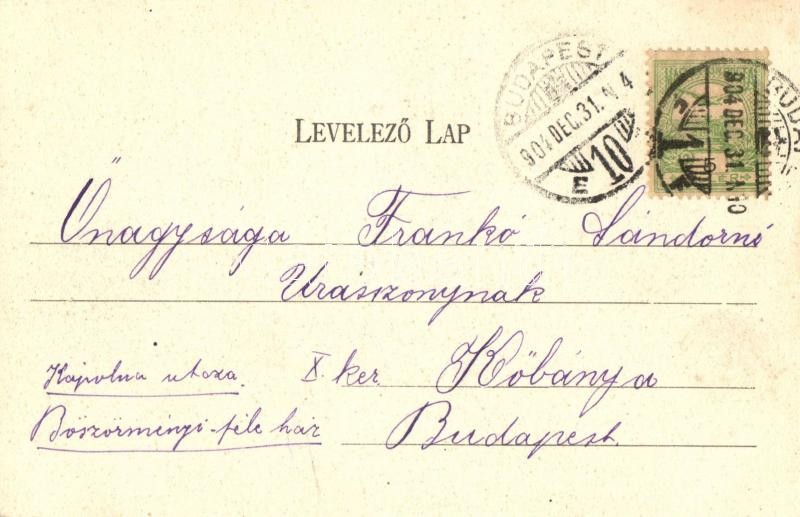 LEVELEZŐ LAP
BUDAPEST
904 DEC. 31. N 4
E 10
904 DEC. 31. N 10
Őnagysága Frankó Sándorné
Úrasszonynak
Kápolna utcza. X. ker. Kőbánya
Böszörményi-féle ház Budapest.